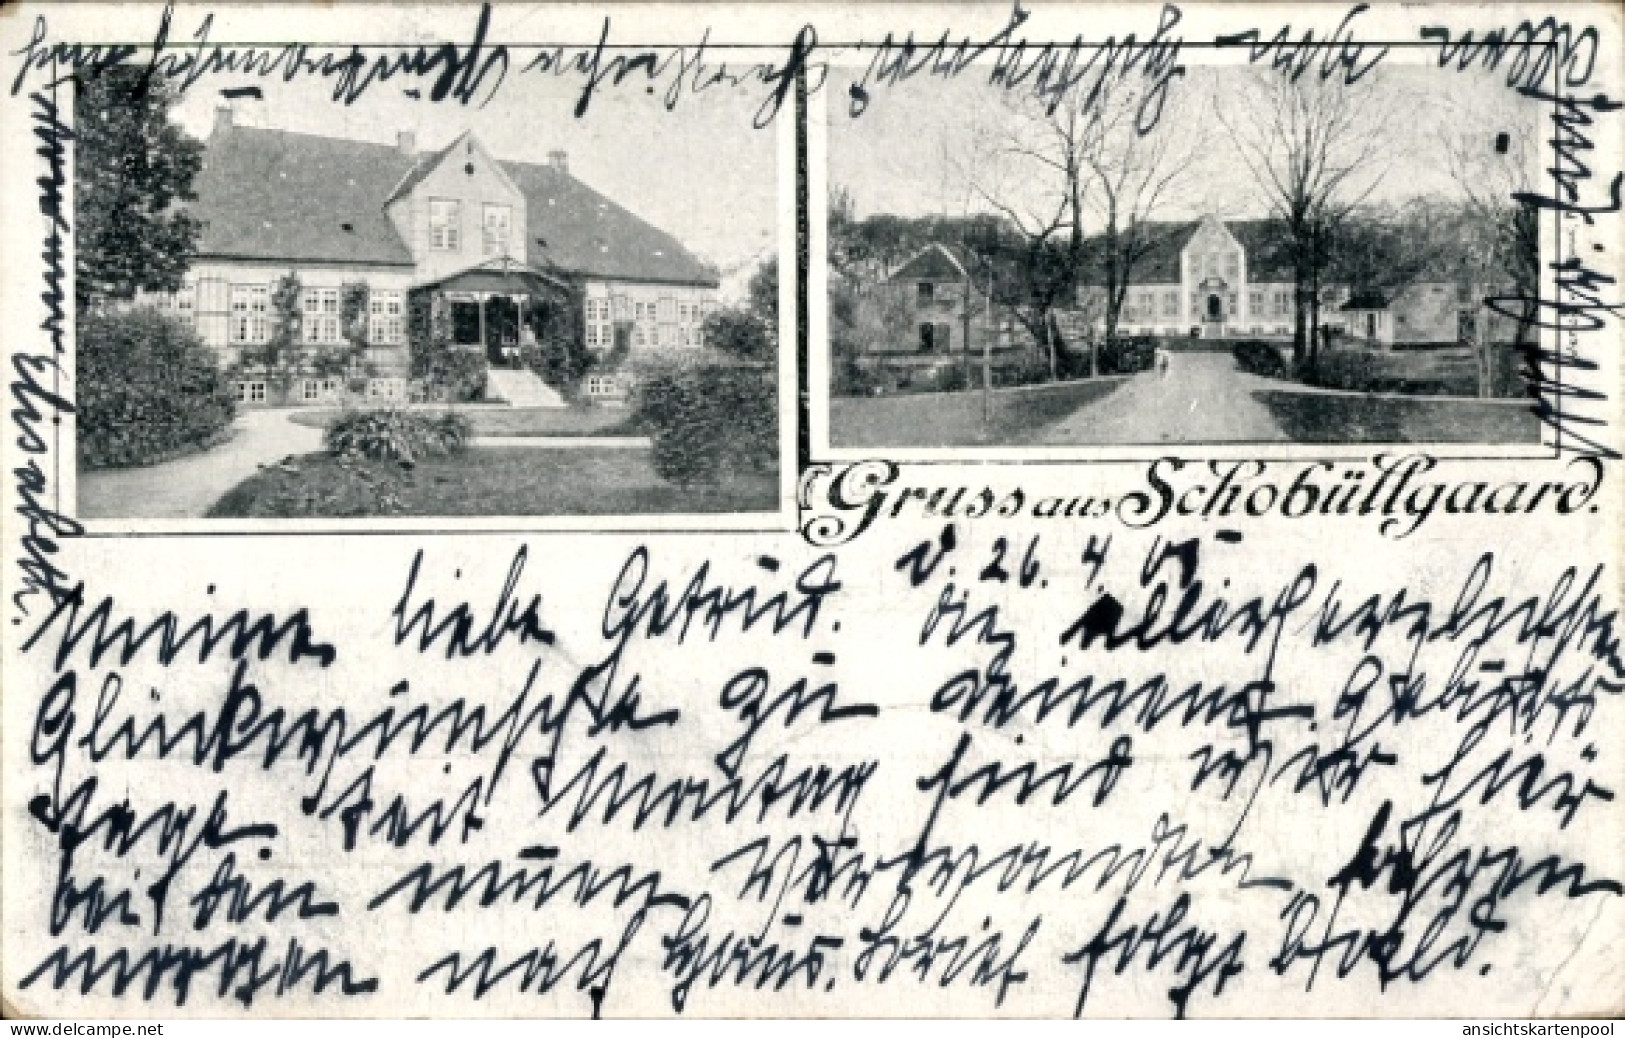 Gruss aus Schobüllgaard.
d. 26. 4. 05
Meine liebe Getrud. Die allerherzlichsten
Glückwünsche zu deinem Geburts
tage. Seit Montag sind wir hier
bei den neuen Verwandten, fahren
morgen nach Haus. Brief folgt bald.
Allen von
Elisabeth.